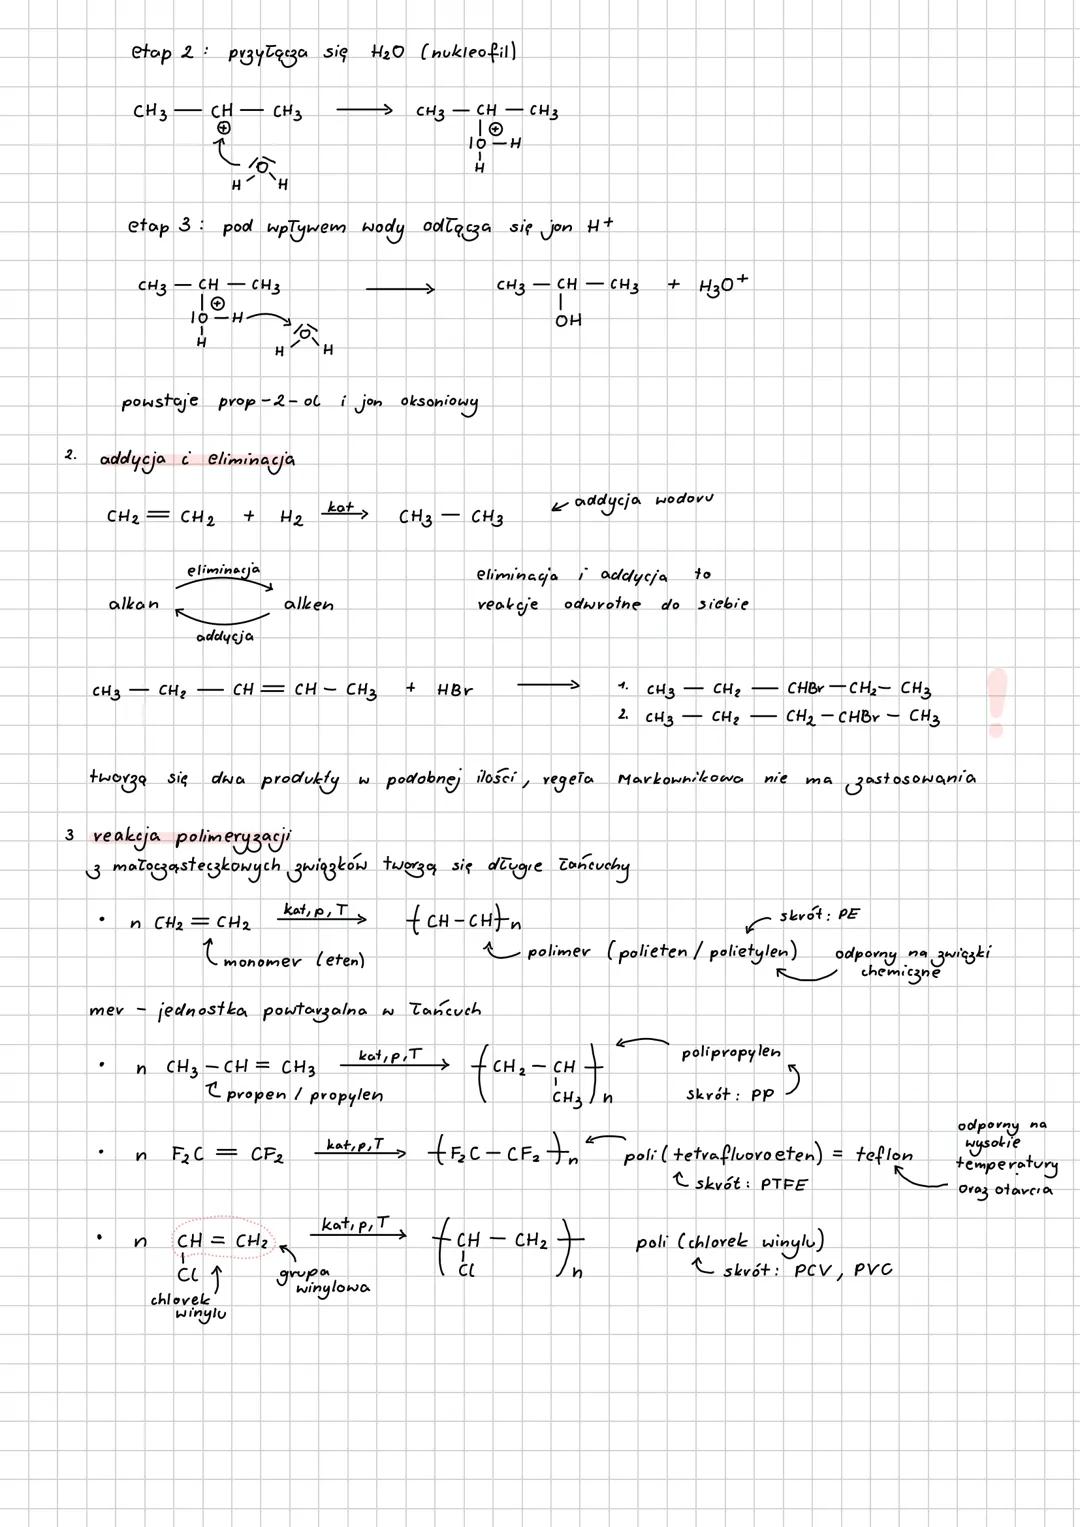 etap 2 : przyłącza się H2O (nukleofil)
CH3 — CH — CH3 ⟶ CH3 — CH — CH3
⊕ | ⊕
IO — H
|
H
O
H H
etap 3 : pod wpływem wody odłącza się jon H+
CH3 — CH — CH3 ⟶ CH3 — CH — CH3 + H3O+
| ⊕ |
IO — H OH
|
H
O
H H
powstaje prop-2-ol i jon oksoniowy
2. addycja i eliminacja
CH2 = CH2 + H2 kat⟶ CH3 — CH3 ↙ addycja wodoru
eliminacja
alkan alken
addycja
eliminacja i addycja to
reakcje odwrotne do siebie
CH3 — CH2 — CH = CH — CH3 + HBr ⟶ 1. CH3 — CH2 — CHBr — CH2 — CH3 !
2. CH3 — CH2 — CH2 — CHBr — CH3
tworzą się dwa produkty w podobnej ilości, reguła Markownikowa nie ma zastosowania
3 reakcja polimeryzacji
z małocząsteczkowych związków tworzą się długie łańcuchy
• n CH2 = CH2 kat, p, T⟶ (CH-CH)n skrót: PE
monomer (eten) polimer (polieten / polietylen) odporny na związki
chemiczne
mer - jednostka powtarzalna w łańcuch
• n CH3 — CH = CH3 kat, p, T⟶ (CH2 — CH)n polipropylen
|
CH3
propen / propylen skrót: PP
• n F2C = CF2 kat, p, T⟶ (F2C — CF2)n poli(tetrafluoroeten) = teflon
skrót: PTFE
odporny na
wysokie
temperatury
oraz otarcia
• n CH = CH2 kat, p, T⟶ (CH — CH2)n poli (chlorek winylu)
| |
Cl Cl
skrót: PCV, PVC
grupa
winylowa
chlorek
winylu